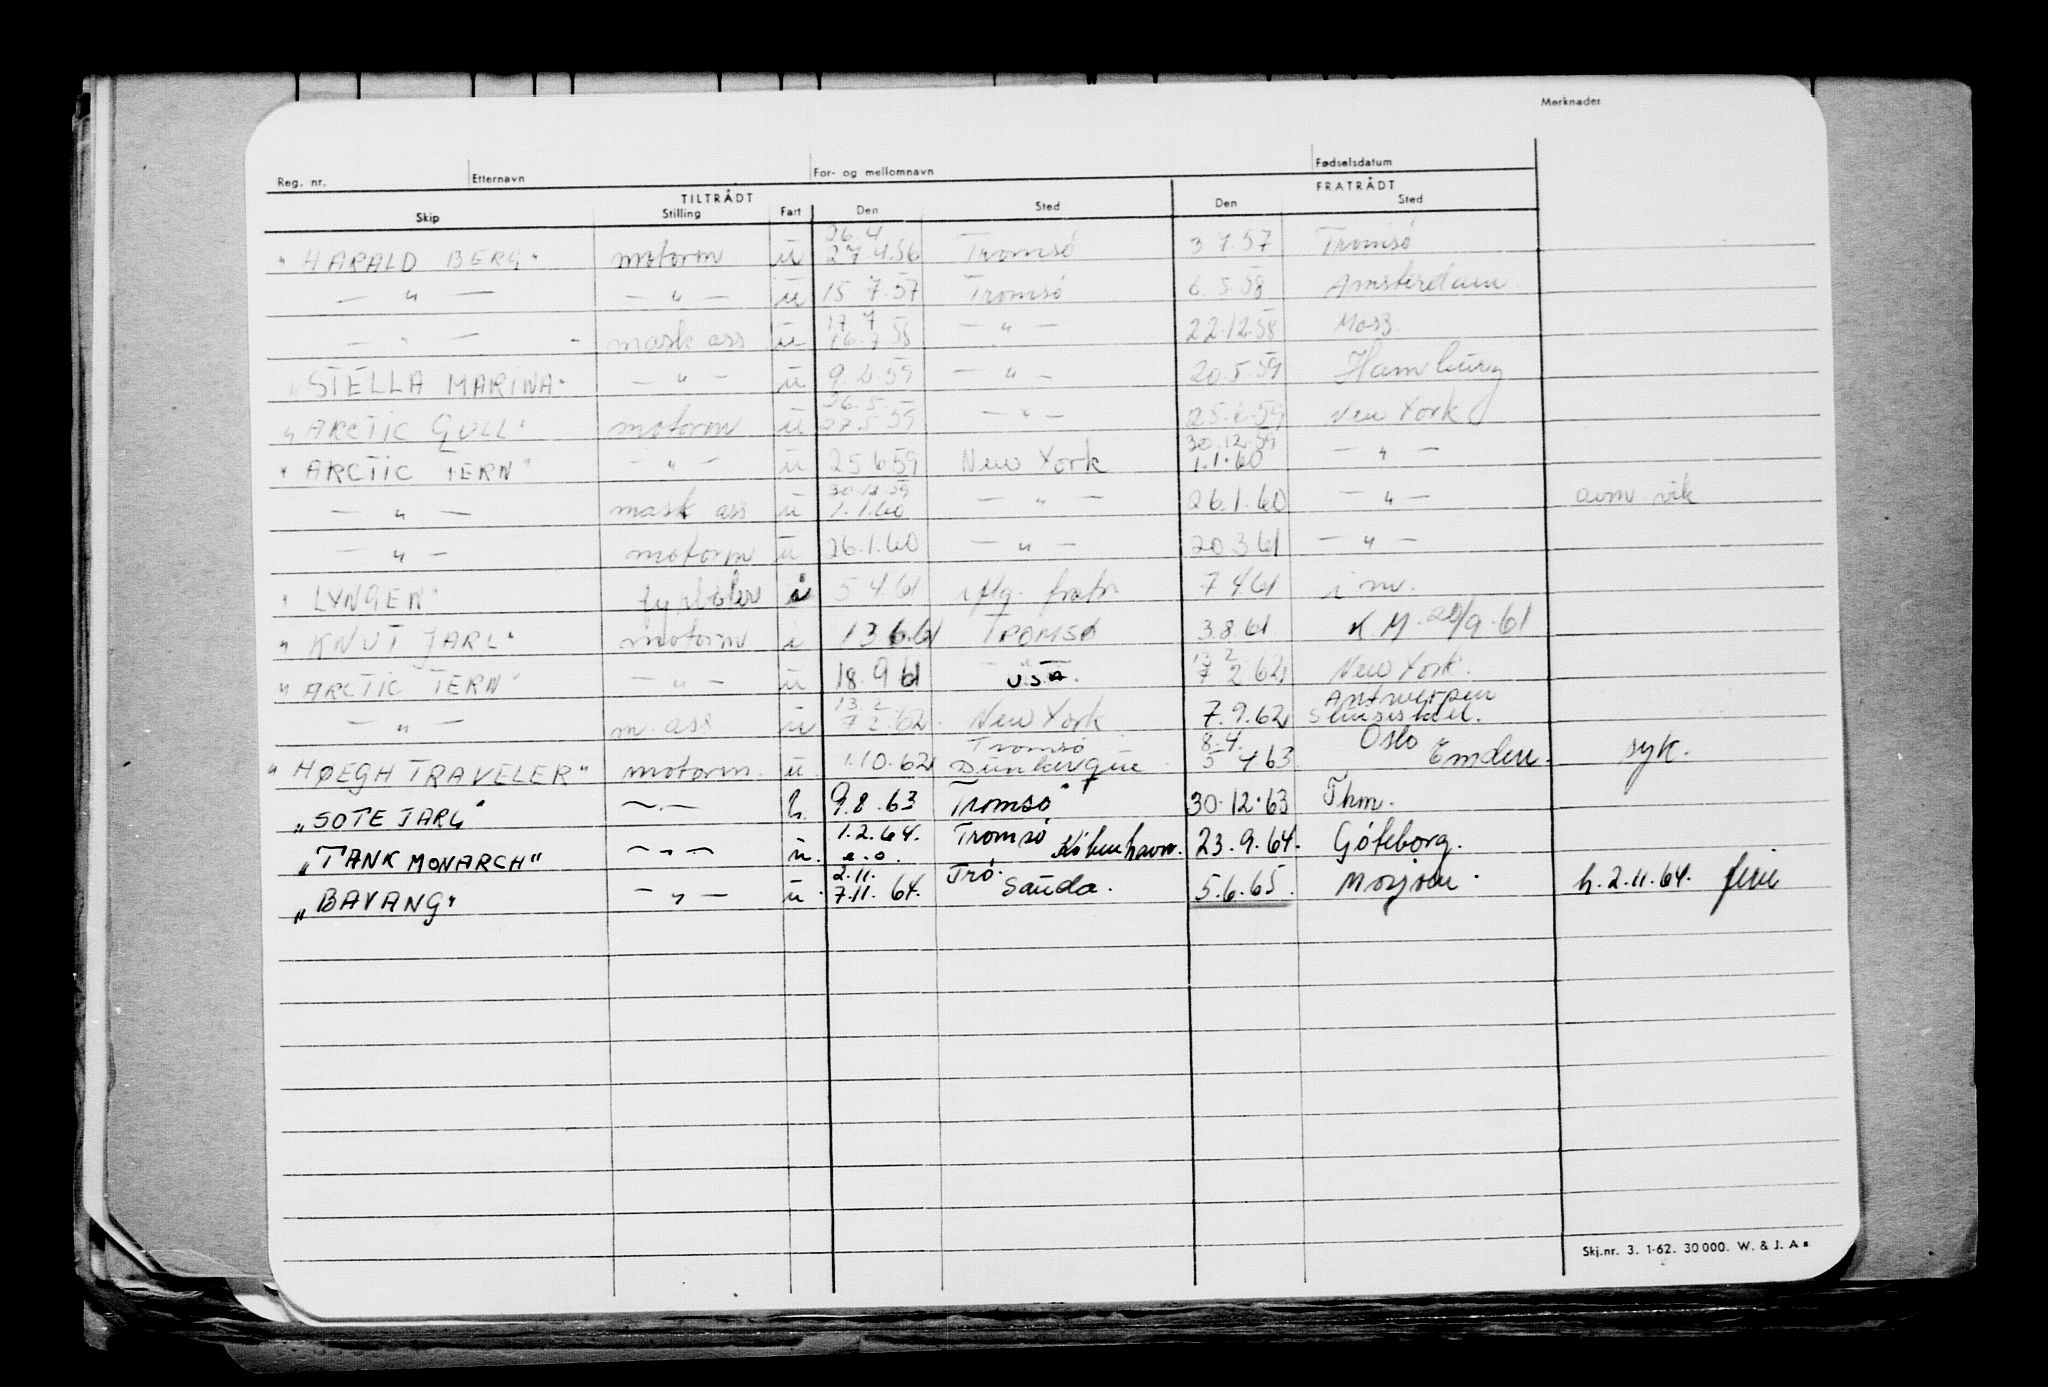 Merknader
Reg. nr. Etternavn For- og mellomnavn Fødselsdatum
TILTRÅDT FRATRÅDT
Skip Stilling Fart Den Sted Den Sted
26.4
"HARALD BERG" motorm u 27.4.56 Tromsø 3.7.57 Tromsø
— " — — " — u 15.7.57 Tromsø 6.5.58 Amsterdam
17.7
— " — mask ass u 16.7.58 — " — 22.12.58 Moss
"STELLA MARINA" — " — u 9.2.59 — " — 20.5.59 Hamburg
26.5.
"ARCTIC GULL" motorm u 27.5.59 — " — 25.6.59 New York
30.12.59
"ARCTIC TERN" — " — u 25.6.59 New York 1.1.60 — " —
30.12.59
— " — mask ass u 1.1.60 — " — 26.1.60 — " — avm. vik
— " — motorm u 26.1.60 — " — 20.3.61 — " —
"LYNGEN" fyrbøter i 5.4.61 iflg. fratr. 7.4.61 i m.
"KNUT JARL" motorm i 13.6.61 TROMSØ 3.8.61 K.M. 20/9.61
13.2
"ARCTIC TERN" — " — u 18.9.61 U.S.A. 7.2.62 New York.
13.2 Antwerpen
— " — m. ass u 7.2.62 New York 7.9.62 Sluiskil.
Tromsø 8.4. Oslo
"HØEGH TRAVELER" motorm. u. 1.10.62 Dunkerque 5.4.63 Emden. syk.
"SOTE JARL" — " — h. 9.8.63 Tromsø 30.12.63 Thm.
1.2.64. Tromsø
"TANK MONARCH" — " — u. e.o. København. 23.9.64. Göteborg.
2.11. Trø.
"BAVANG" — " — u. 7.11.64. Sauda. 5.6.65. Mosjøen. h. 2.11.64.
Skj.nr. 3. 1-62. 30 000. W. & J. A s